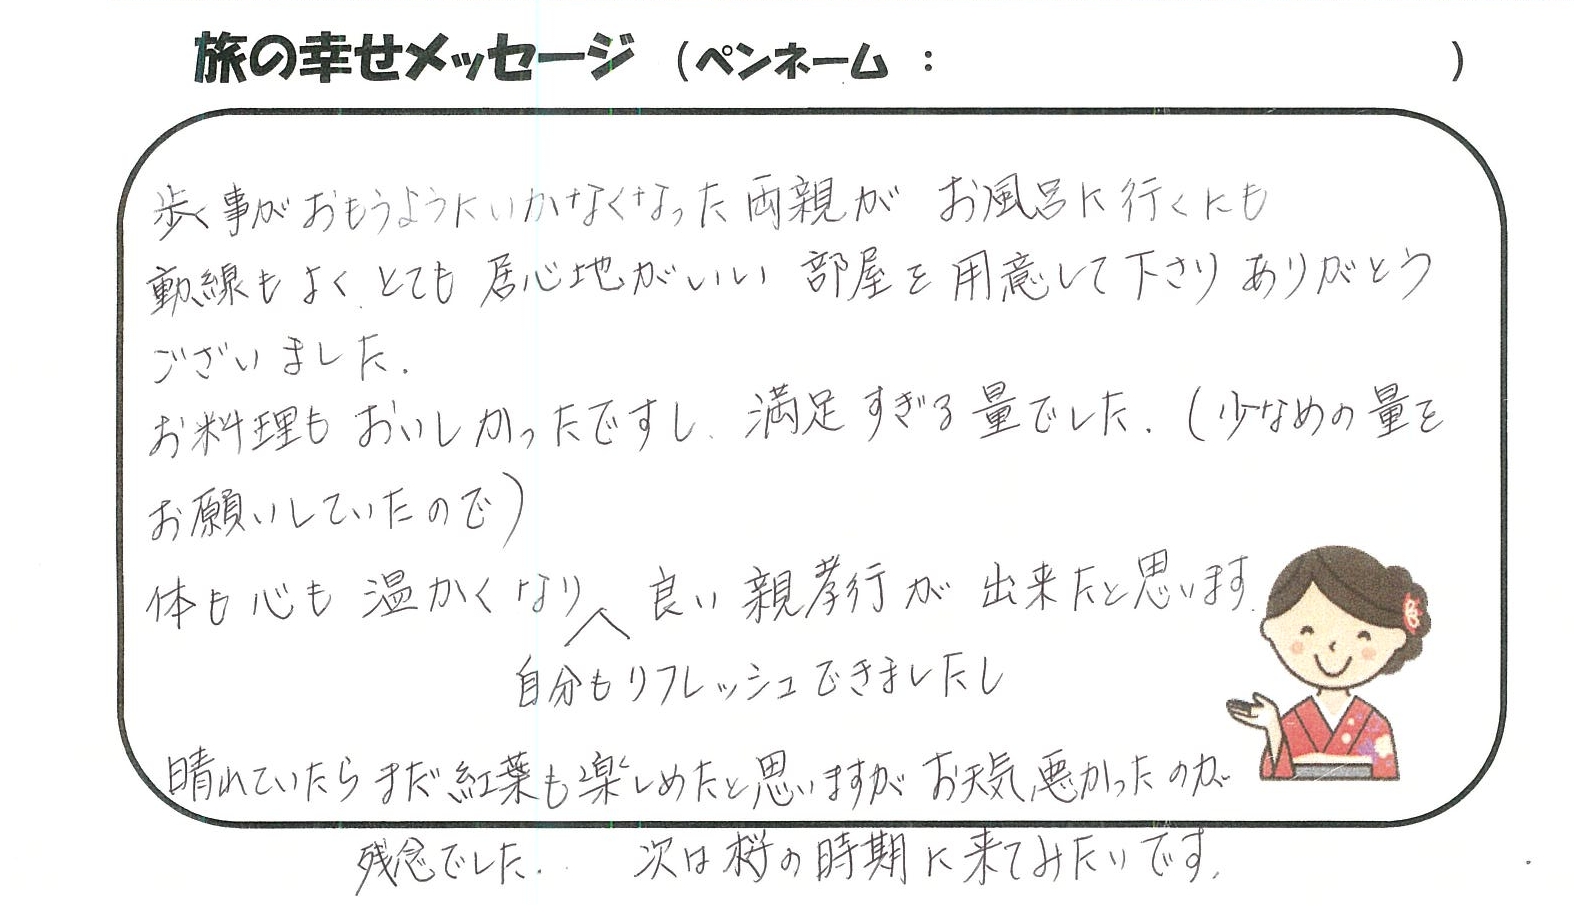 旅の幸せメッセージ （ペンネーム：　）
歩く事がおもうようにいかなくなった両親が お風呂に行くにも
動線もよく、とても居心地がいい 部屋を用意して下さり ありがとう
ございました.
お料理も おいしかったですし、満足すぎる量でした.（少なめの量を
お願いしていたので）
体も心も 温かくなり 良い親孝行が 出来たと思います.
自分もリフレッシュできましたし
晴れていたらまだ紅葉も楽しめたと思いますが お天気悪かったのが
残念でした. 次は桜の時期に来てみたいです.